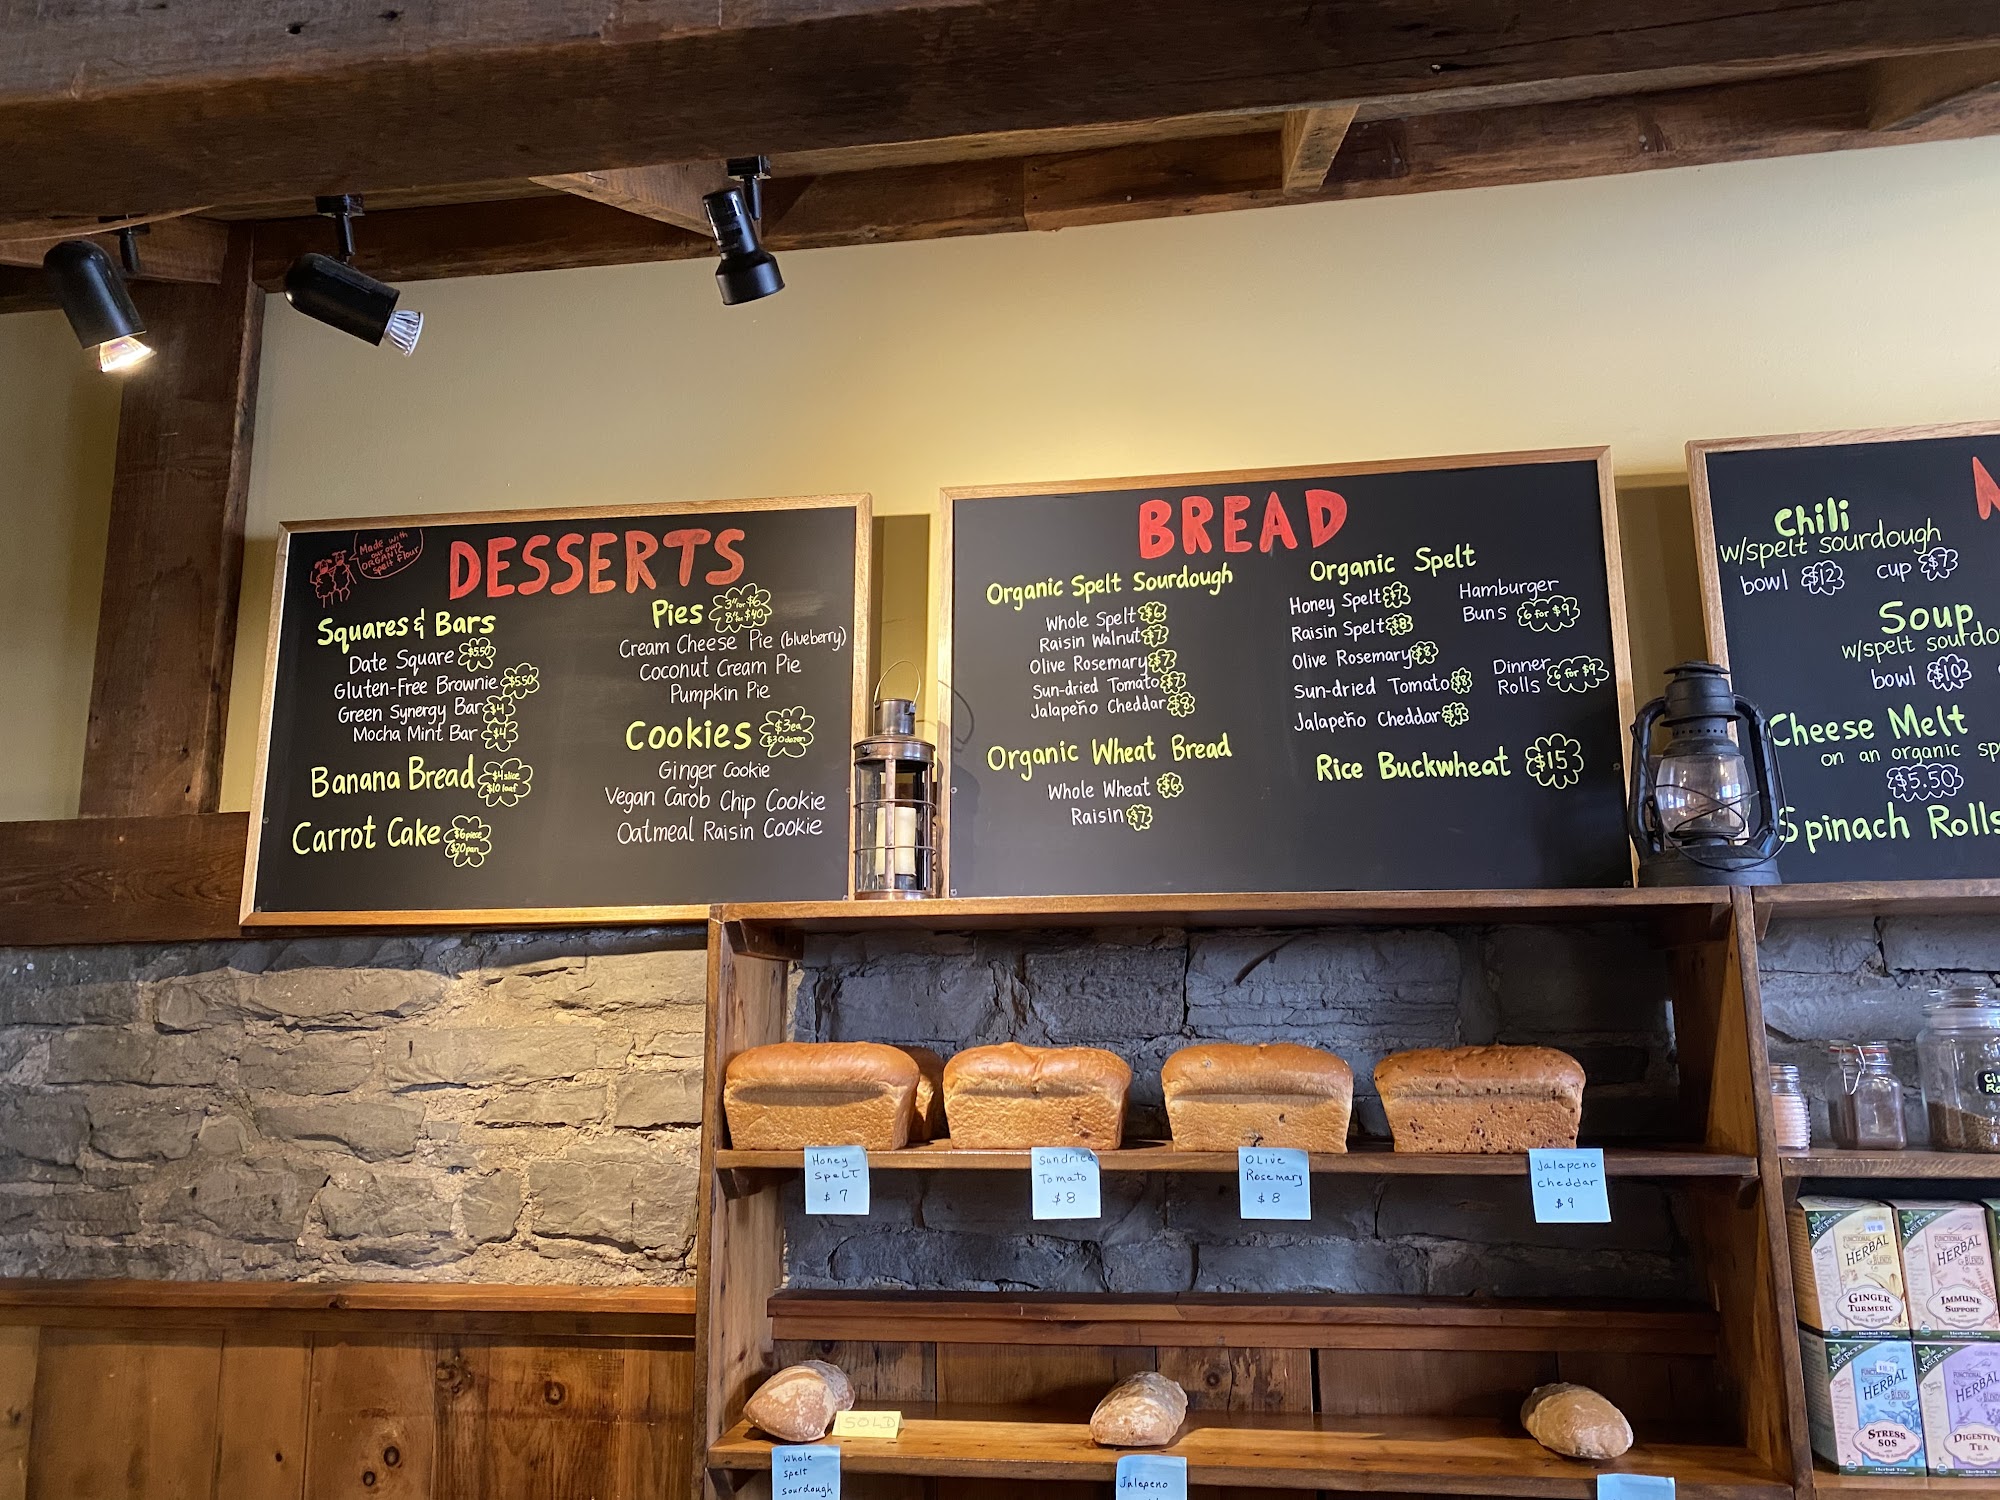 Made with
our own
ORGANIC
spelt flour
DESSERTS
Squares & Bars
Date Square $5.50
Gluten-Free Brownie $5.50
Green Synergy Bar $4
Mocha Mint Bar $4
Banana Bread $4 slice
$10 loaf
Carrot Cake $6 piece
$20 pan
Pies 3" for $6
8" for $40
Cream Cheese Pie (blueberry)
Coconut Cream Pie
Pumpkin Pie
Cookies $3 ea
$30 dozen
Ginger Cookie
Vegan Carob Chip Cookie
Oatmeal Raisin Cookie
BREAD
Organic Spelt Sourdough
Whole Spelt $6
Raisin Walnut $7
Olive Rosemary $7
Sun-dried Tomato $7
Jalapeño Cheddar $8
Organic Wheat Bread
Whole Wheat $6
Raisin $7
Organic Spelt
Honey Spelt $7
Raisin Spelt $8
Olive Rosemary $8
Sun-dried Tomato $8
Jalapeño Cheddar $9
Hamburger
Buns 6 for $9
Dinner
Rolls 6 for $9
Rice Buckwheat $15
Chili
w/spelt sourdough
bowl $12 cup $7
Soup
w/spelt sourdo
bowl $10
Cheese Melt
on an organic sp
$5.50
Spinach Rolls
Honey
Spelt
$7
Sundried
Tomato
$8
Olive
Rosemary
$8
Jalapeno
Cheddar
$9
SOLD
Whole
Spelt
Sourdough
Jalepeno
FUNCTIONAL
HERBAL
BLENDS
GINGER
TURMERIC
Black Pepper
Herbal Tea
FUNCTIONAL
HERBAL
BLENDS
IMMUNE
SUPPORT
Herbal Tea
FUNCTIONAL
HERBAL
BLENDS
STRESS
SOS
Herbal Tea
FUNCTIONAL
HERBAL
BLENDS
DIGESTIVE
TEA
Herbal Tea